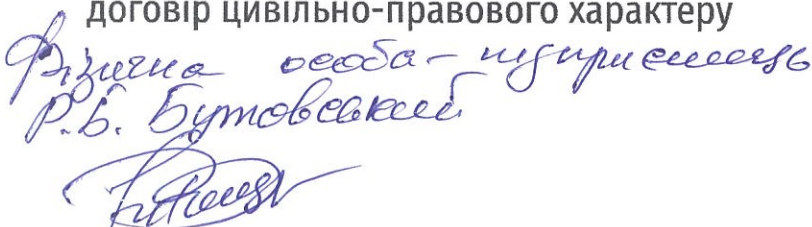 договір цивільно-правового характеру
Фізична особа-підприємець
Р.Б. Бутовський